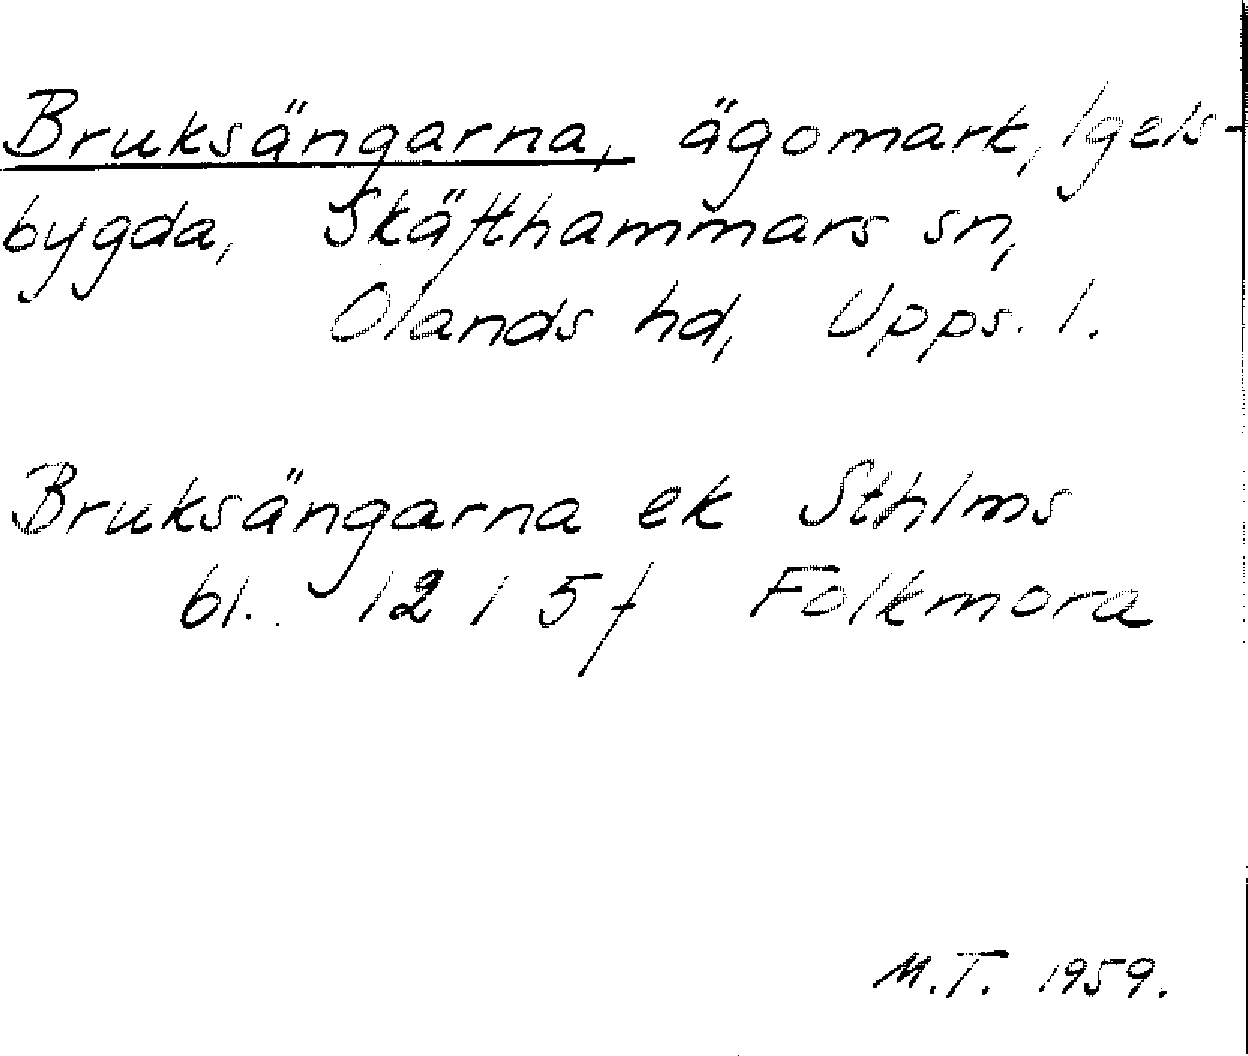 Bruksängarna, ägomark, Igels-
bygda, Skäfthammars sn,
Olands hd, Upps. l.
Bruksängarna ek Sthlms
bl. 12 I 5f Folkmora
M.T. 1959.